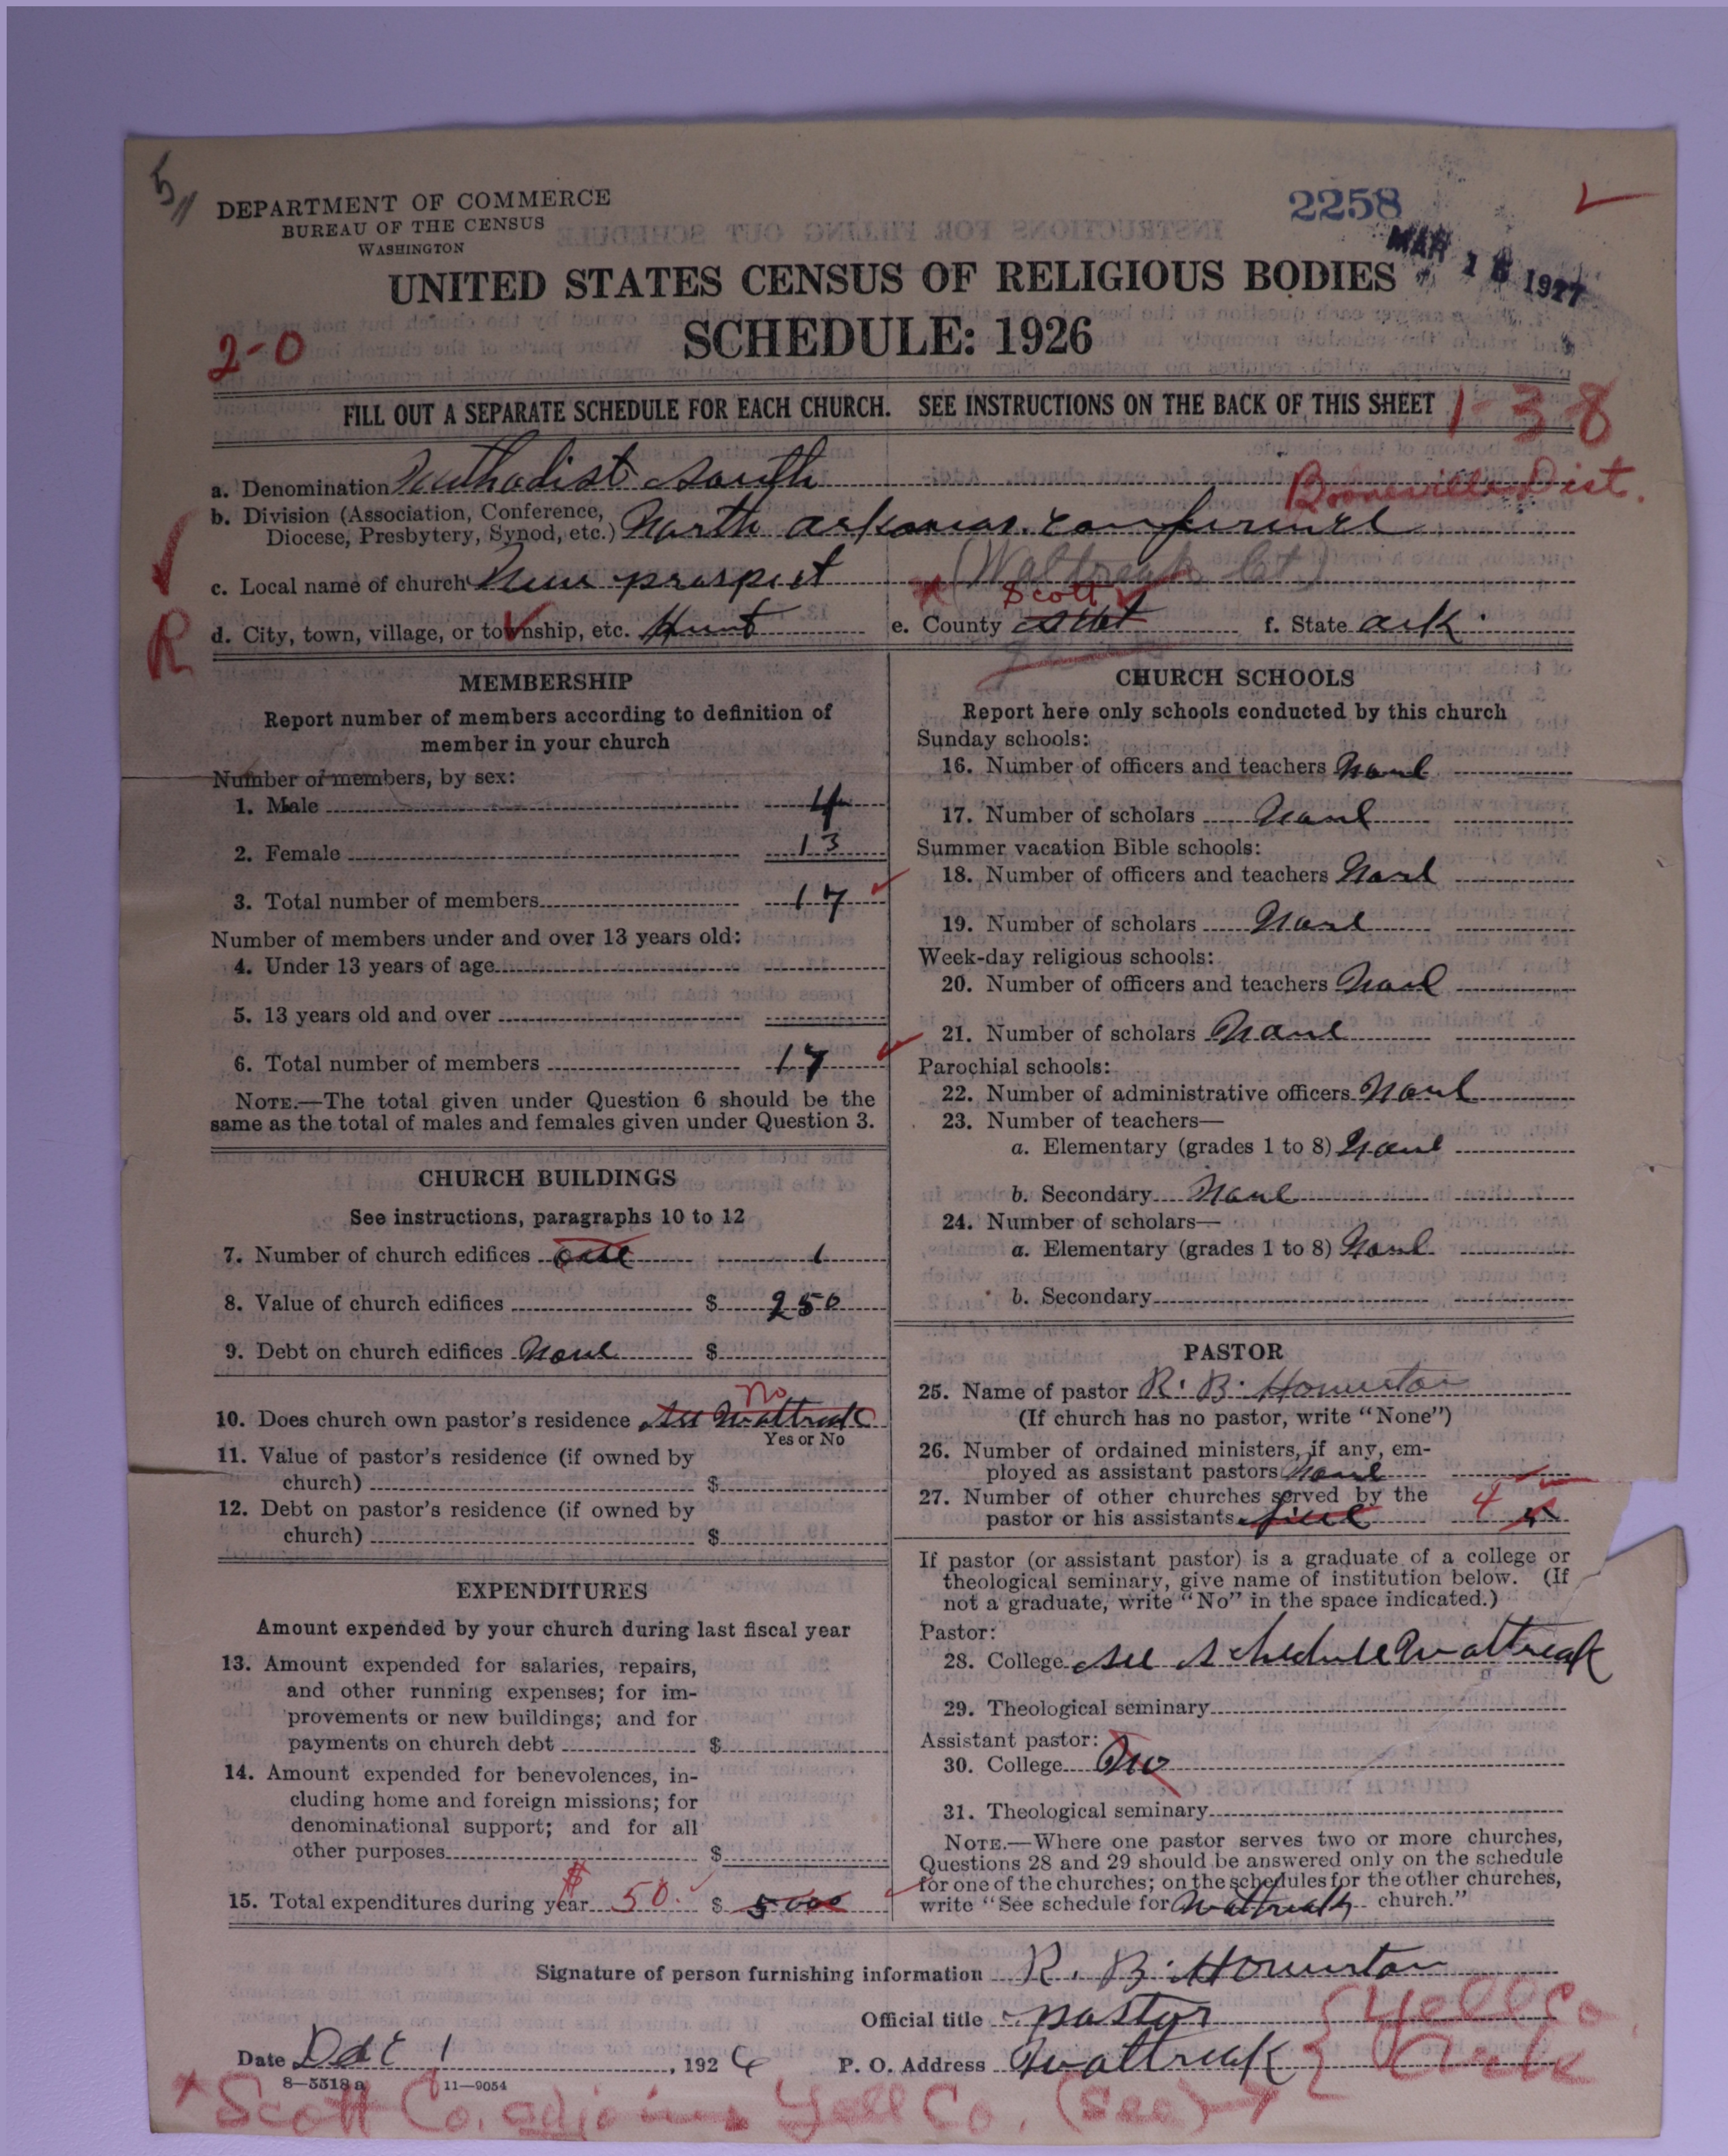 5
DEPARTMENT OF COMMERCE
BUREAU OF THE CENSUS
WASHINGTON
2258
MAR 18 1927
UNITED STATES CENSUS OF RELIGIOUS BODIES
SCHEDULE: 1926
2-0
FILL OUT A SEPARATE SCHEDULE FOR EACH CHURCH. SEE INSTRUCTIONS ON THE BACK OF THIS SHEET
1-3-8
a. Denomination Methodist South
Booneville Dist.
b. Division (Association, Conference, Diocese, Presbytery, Synod, etc.) North Arkansas Conference
c. Local name of church New prospect (Waltreak Ct.)
R
d. City, town, village, or township, etc. Hunt e. County Scott Scott f. State Ark
MEMBERSHIP
Report number of members according to definition of
member in your church
Number of members, by sex:
1. Male 4
2. Female 13
3. Total number of members 17
Number of members under and over 13 years old:
4. Under 13 years of age
5. 13 years old and over
6. Total number of members 17
NOTE.—The total given under Question 6 should be the
same as the total of males and females given under Question 3.
CHURCH BUILDINGS
See instructions, paragraphs 10 to 12
7. Number of church edifices one 1
8. Value of church edifices $ 250
9. Debt on church edifices None $
10. Does church own pastor's residence See Waltreak No
Yes or No
11. Value of pastor's residence (if owned by
church) $
12. Debt on pastor's residence (if owned by
church) $
EXPENDITURES
Amount expended by your church during last fiscal year
13. Amount expended for salaries, repairs,
and other running expenses; for im-
provements or new buildings; and for
payments on church debt $
14. Amount expended for benevolences, in-
cluding home and foreign missions; for
denominational support; and for all
other purposes $
15. Total expenditures during year $ 50. $ 5000
CHURCH SCHOOLS
Report here only schools conducted by this church
Sunday schools:
16. Number of officers and teachers None
17. Number of scholars None
Summer vacation Bible schools:
18. Number of officers and teachers None
19. Number of scholars None
Week-day religious schools:
20. Number of officers and teachers None
21. Number of scholars None
Parochial schools:
22. Number of administrative officers None
23. Number of teachers—
a. Elementary (grades 1 to 8) None
b. Secondary None
24. Number of scholars—
a. Elementary (grades 1 to 8) None
b. Secondary
PASTOR
25. Name of pastor R. B. Howerton
(If church has no pastor, write "None")
26. Number of ordained ministers, if any, em-
ployed as assistant pastors None
27. Number of other churches served by the
pastor or his assistants five 4
If pastor (or assistant pastor) is a graduate of a college or
theological seminary, give name of institution below. (If
not a graduate, write "No" in the space indicated.)
Pastor:
28. College See Schedule Waltreak
29. Theological seminary
Assistant pastor:
30. College No
31. Theological seminary
NOTE.—Where one pastor serves two or more churches,
Questions 28 and 29 should be answered only on the schedule
for one of the churches; on the schedules for the other churches,
write "See schedule for Waltreak church."
Signature of person furnishing information R. B. Howerton
Official title pastor
Date Dec 1, 1926 P. O. Address Waltreak
Yell Co.
Ark
8—5518a 11—9054
* Scott Co. adjoins Yell Co. (See)